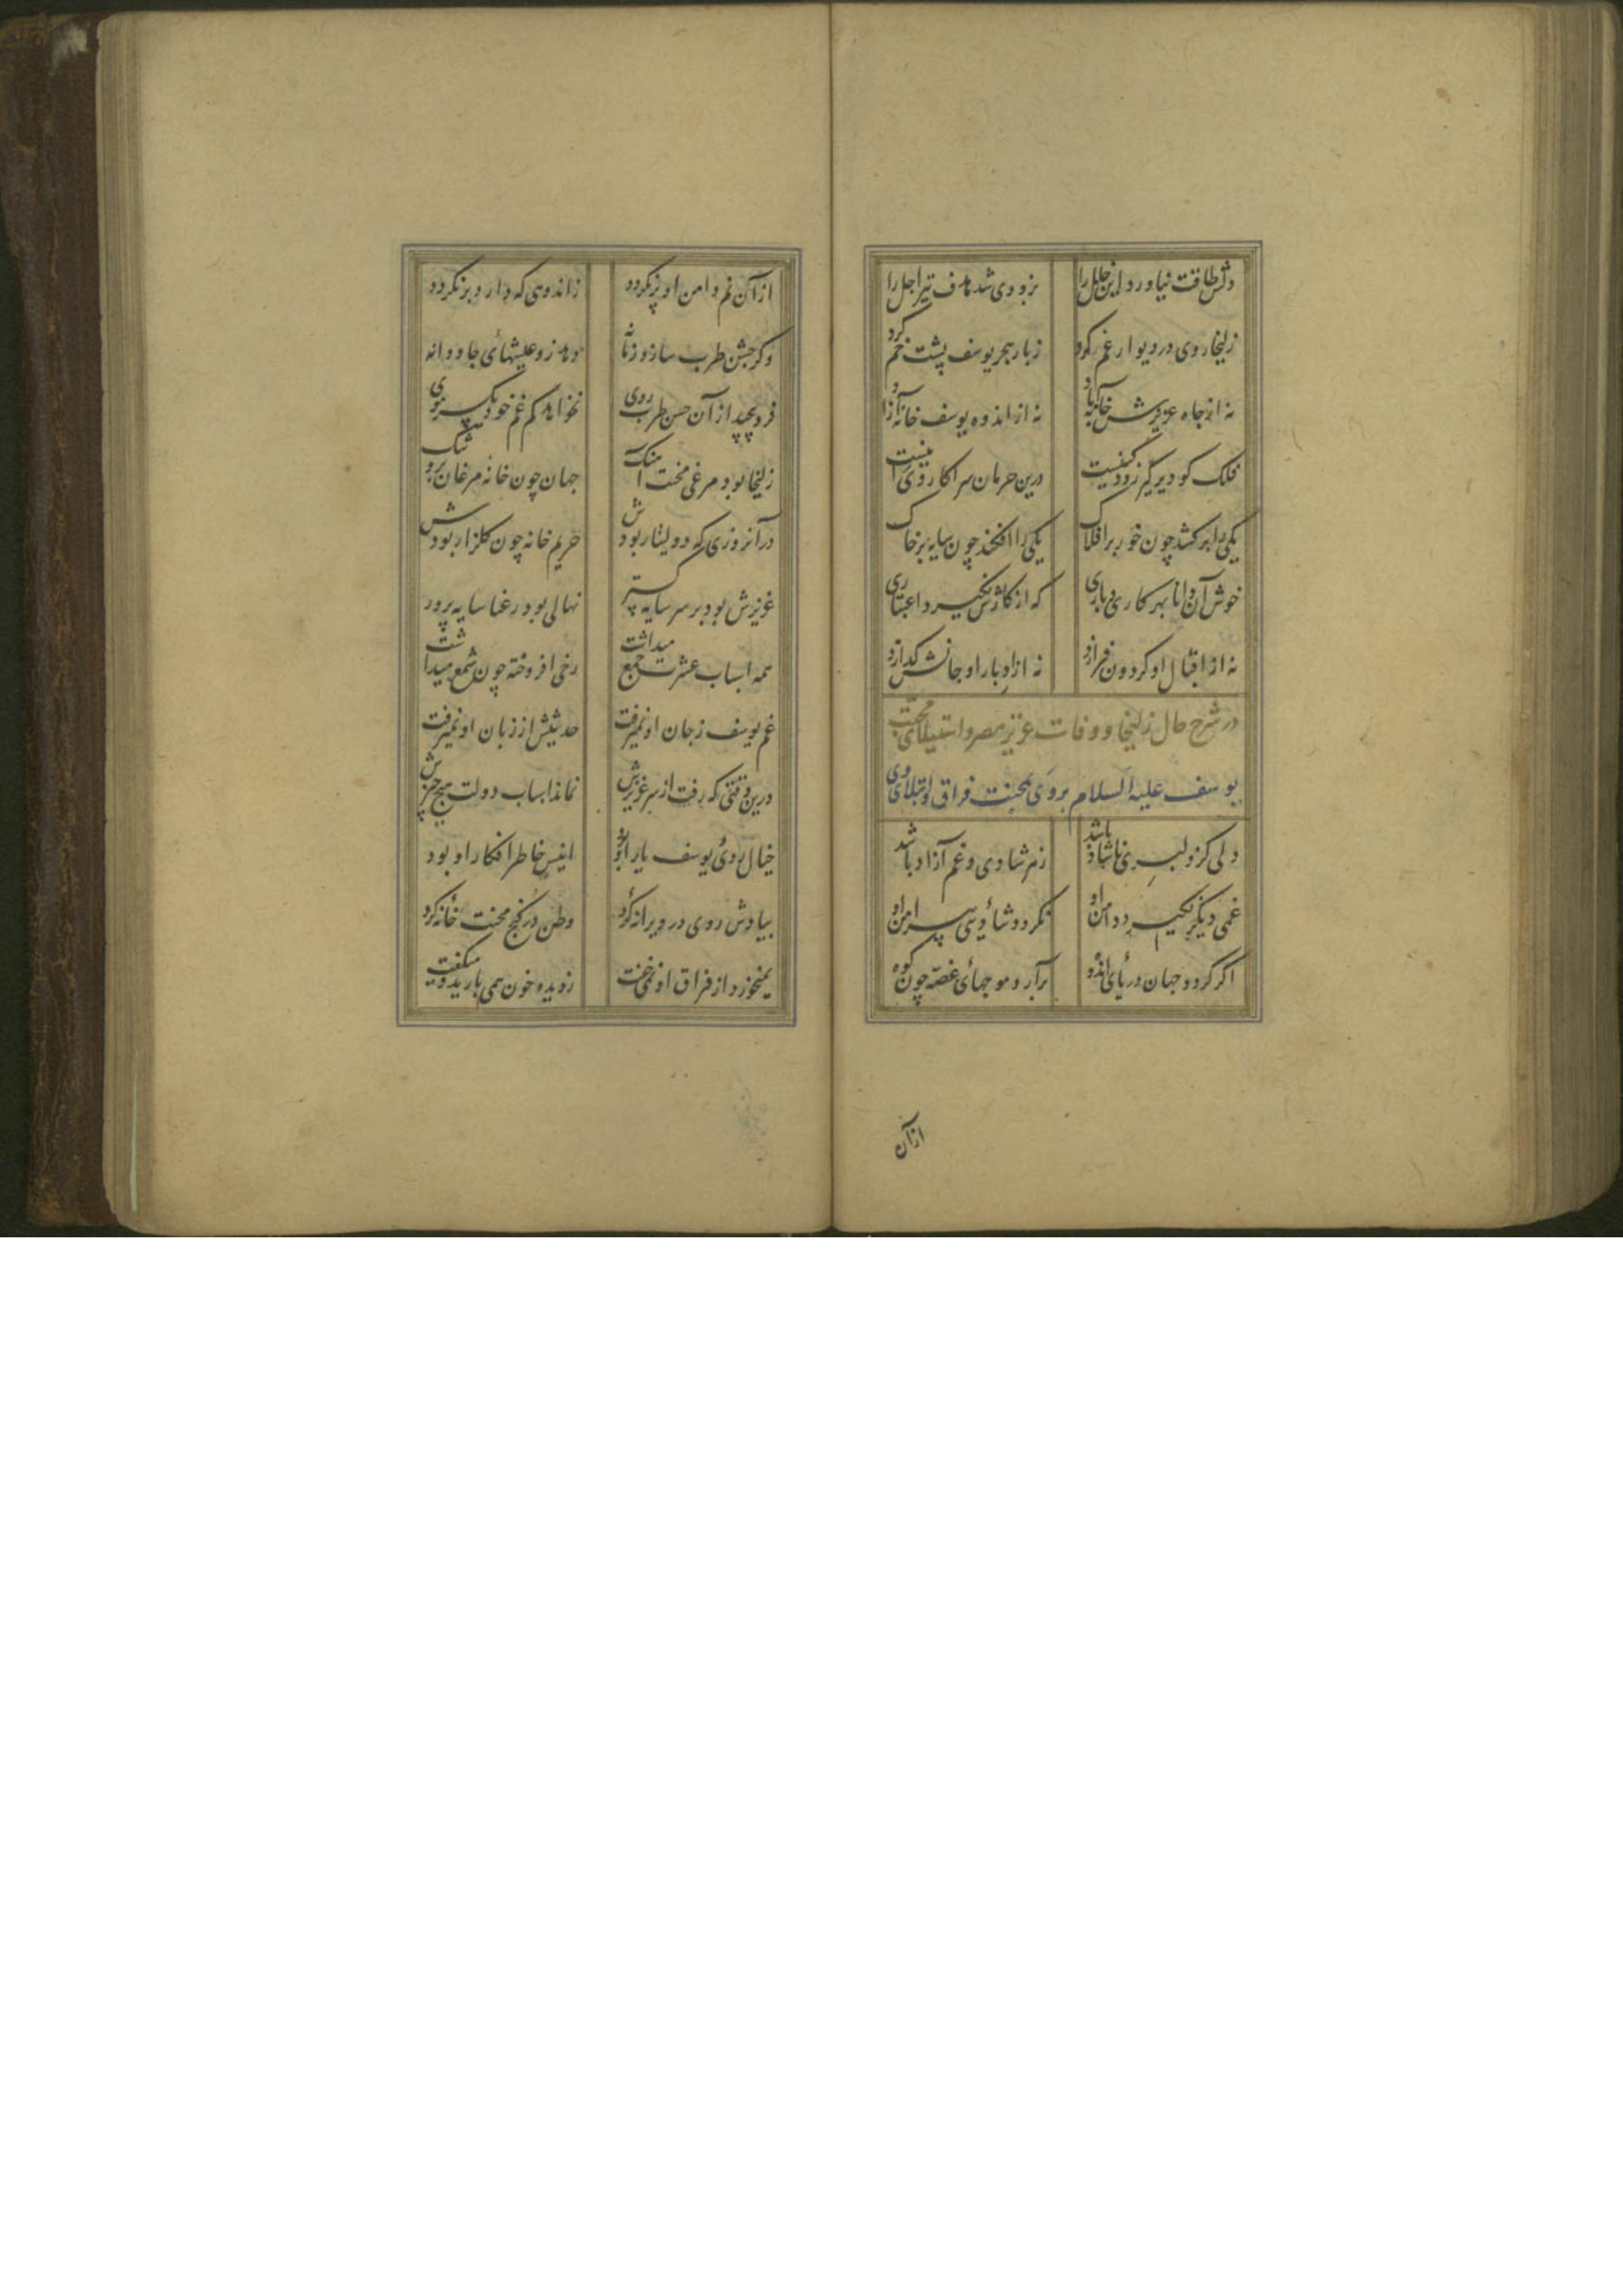 دلش طاقت نیاورد این خلل را بزودی شد هدف تیر اجل را
زلیخا روی در دیوار غم کرد زبار هجر یوسف پشت خم کرد
نه از جاه عزیزش خانه آباد نه از اندوه یوسف خانه آزاد
فلک کو دیر گیر زود کینست درین حرمان سرا کار وی اینست
یکی را برکشد چون خور بر افلاک یکی را افکند چون سایه بر خاک
خوش آن دانا بهر کاری و باری که از کارش نگیرد اعتباری
نه از اقبال او گردون فرازد نه از ادبار او جانش گدازد
در شرح حال زلیخا و وفات عزیز مصر و استیلای محبت
یوسف علیه السلام بر وی بمحنت فراق و ابتلای وی
دلی کز دلبری ناشاد باشد زهر شادی و غم آزاد باشد
غمی دیگر نگیرد دامن او نگردد شادیی پیرامن او
اگر گردد جهان دریای اندوه برآرد موجهای غصه چون کوه
ازآن
ازآن نم دامن او تر نگردد زاندوهی که دارد بر نگردد
وگر جشن طرب سازد زمانه دهد زو عیشهای جاودانه
فرو پیچد از آن جشن طرب روی نخواهد کم غم خود یکسر موی
زلیخا بود مرغی محنت آهنگ جهان چون خانه مرغان برو تنگ
در آنروزی که دولت یار بودش حریم خانه چون گلزار بودش
عزیزش بود بر سر سایه گستر نهالی بود رعنا سایه پرور
همه اسباب عشرت جمع میداشت رخی افروخته چون شمع میداشت
غم یوسف زجان او نمیرفت حدیثش از زبان او نمیرفت
درین وقتی که رفت از سر عزیزش نماند اسباب دولت هیچ چیزش
خیال روی یوسف یار او بود انیس خاطر افکار او بود
بیادش روی در ویرانه کرد وطن در کنج محنت خانه کرد
نمیخورد از فراق او نمی خفت زدیده خون همی بارید و میگفت